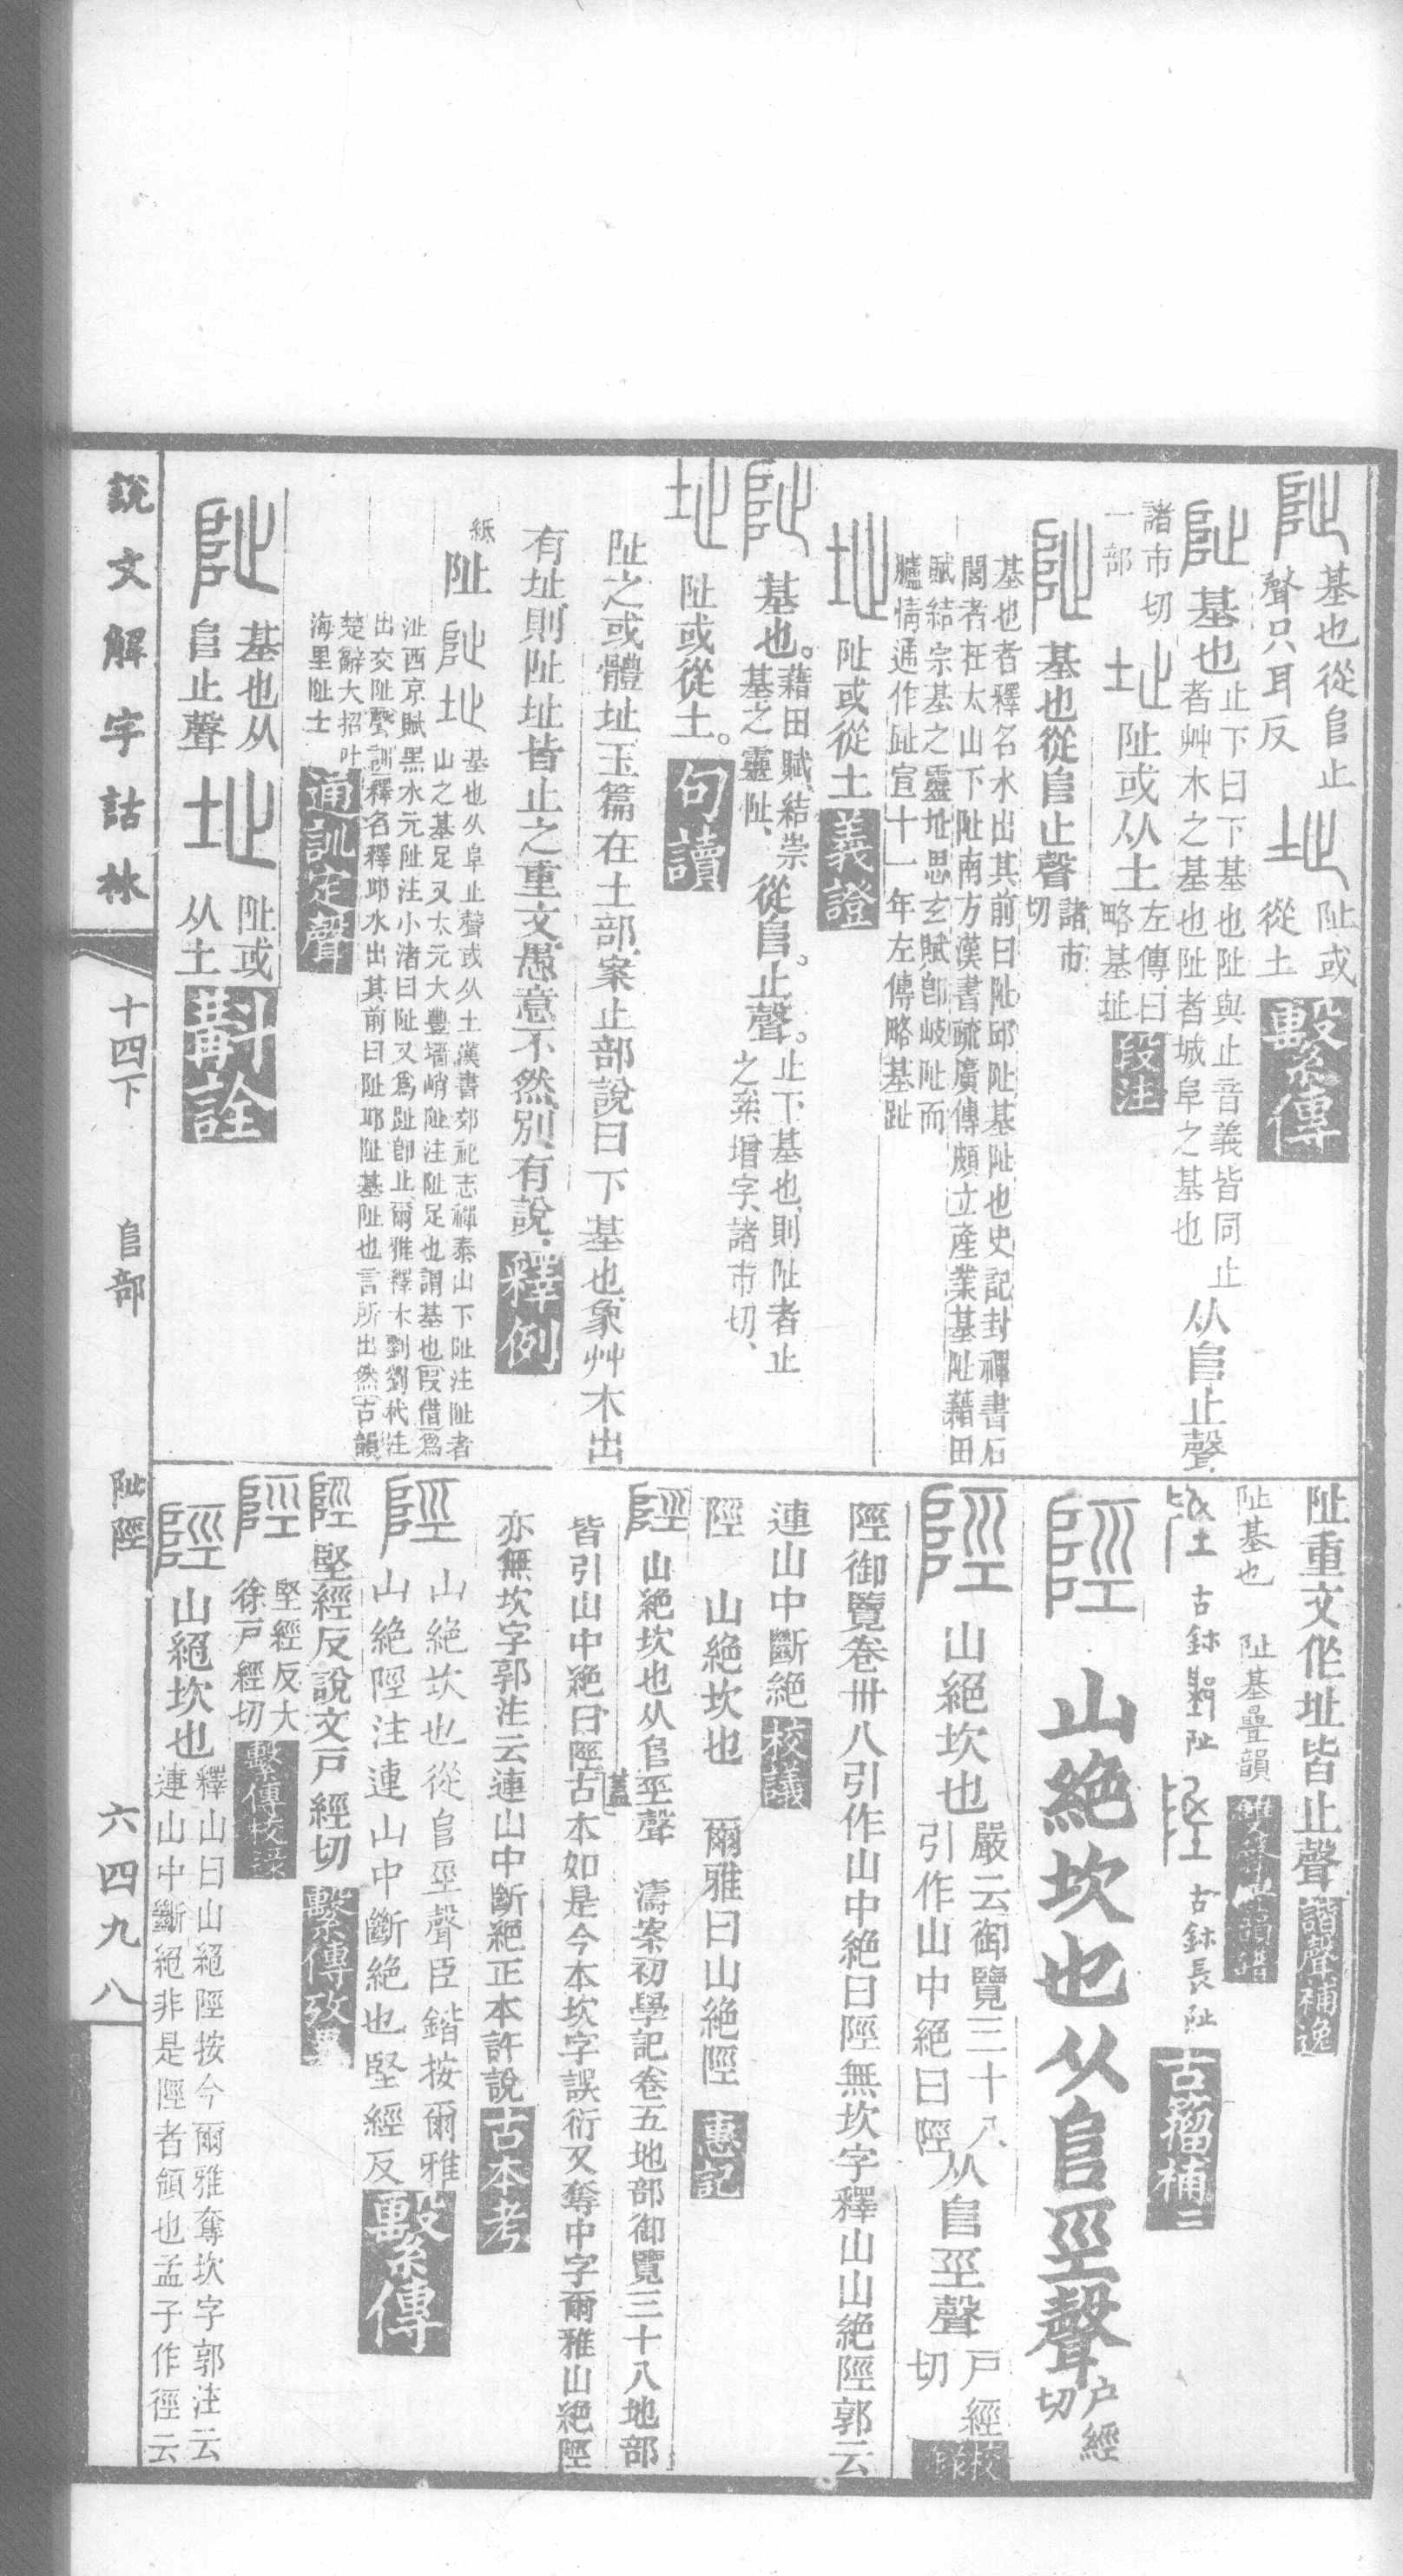 阯 基也從𨸏止
聲只耳反 址 阯或
從土 繫傳
阯 基也 止下曰下基也阯與止音義皆同止
者艸木之基也阯者城阜之基也 从𨸏止聲
諸市切
一部 址 阯或从土 左傳曰
略基址 段注
阯 基也從𨸏止聲 諸市
切
基也者釋名水出其前曰阯邱阯基阯也史記封禪書石
閭者在太山下阯南方漢書疏廣傳頗立產業基阯藉田
賦結宗基之靈址思玄賦卽岐阯而
臚情通作趾宣十一年左傳略基趾
址 阯或從土 義證
阯 基也。 藉田賦結崇
基之靈阯、 從𨸏。止聲。 止下基也則阯者止
之絫增字、諸市切、
址 阯或從土。 句讀
阯之或體址玉篇在土部案止部說曰下基也象艸木出
有址則阯址皆止之重文愚意不然別有說 釋例
紙 阯 阯 址 基也从阜止聲或从土漢書郊祀志禪泰山下阯注阯者
山之基足又太元大豐墻峭阯注阯足也謂基也叚借爲
沚西京賦黑水元阯注小渚曰阯又爲趾卽止爾雅釋木劉劉杙注
出交阯聲訓釋名釋邱水出其前曰阯邱阯基阯也言所出然古韻
楚辭大招叶
海里阯士 通訓定聲
阯 基也从
𨸏止聲 址 阯或
从土 斠詮
阯重文作址皆止聲 諧聲補逸
阯基也 阯基疊韻 雙聲疊韻譜
古鉢 阯 古鉢長阯 古籀補二
陘 山絕坎也从𨸏巠聲 戶經
切
陘 山絕坎也 嚴云御覽三十八
引作山中絕曰陘 从𨸏巠聲 戶經
切 校錄
陘御覽卷卅八引作山中絕曰陘無坎字釋山山絕陘郭云
連山中斷絕 校議
陘 山絕坎也 爾雅曰山絕陘 惠記
陘 山絕坎也从𨸏巠聲 濤案初學記卷五地部御覽三十八地部
皆引山中絕曰陘蓋古本如是今本坎字誤衍又奪中字爾雅山絕陘
亦無坎字郭注云連山中斷絕正本許說 古本考
陘 山絕坎也從𨸏巠聲臣鍇按爾雅
山絕陘注連山中斷絕也堅經反 繫傳
陘 堅經反說文戶經切 繫傳攷異
陘 堅經反大
徐戶經切 繫傳校錄
陘 山絕坎也 釋山曰山絕陘按今爾雅奪坎字郭注云
連山中斷絕非是陘者領也孟子作徑云
說文解字詁林 十四下 𨸏部 阯陘 六四九八